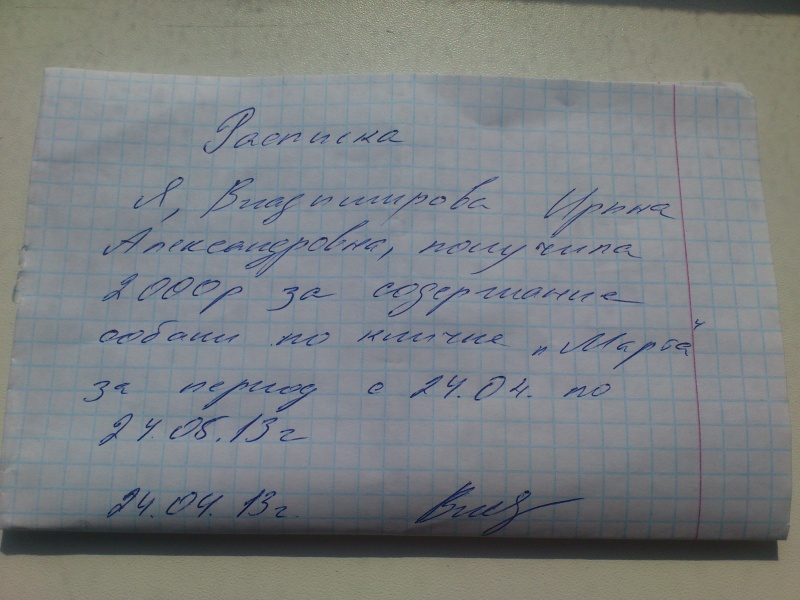 Расписка
Я, Владимирова Ирина
Александровна, получила
2000р за содержание
собаки по кличке "Марта"
за период с 24.04. по
24.05.13г
24.04.13г.